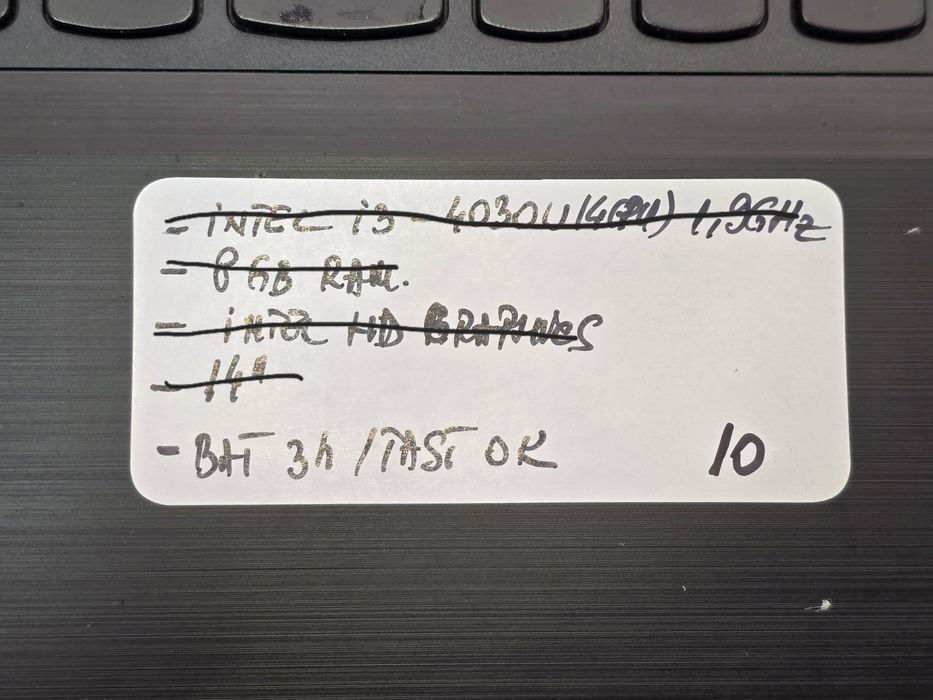 - INTEL i3 - 4030U (4CPU) 1,9GHz
- 8 GB RAM.
- INTEL HD GRAPHICS
- 14"
- BAT 3h / TAST OK 10